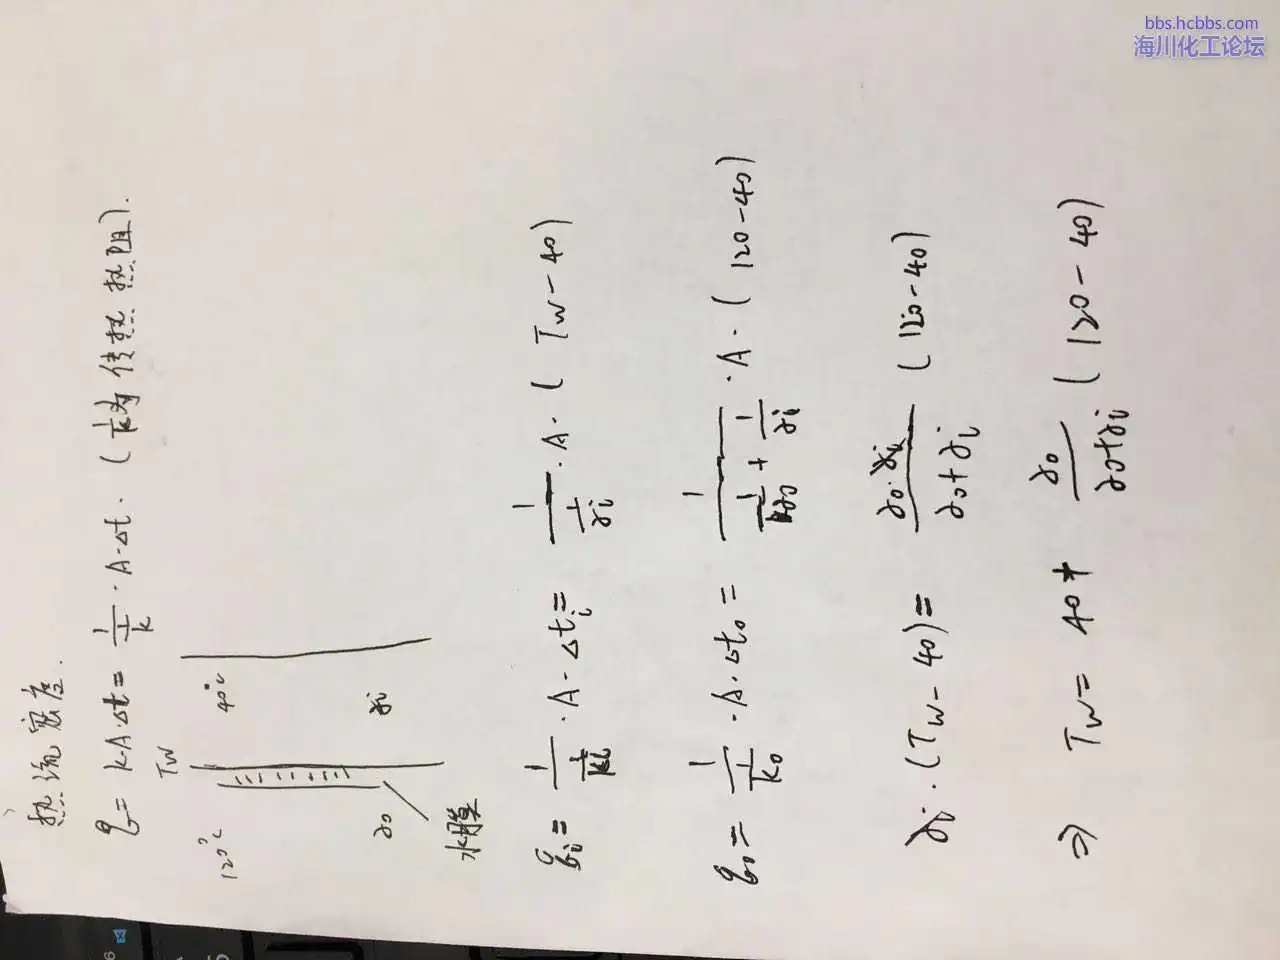 bbs.hcbbs.com
海川化工论坛
热流密度.
q = K·A·Δt = 1/(1/K) · A·Δt. (1/K 为传热热阻).
Tw
120℃ 40℃
αo αi
水膜
qi = 1/(1/Ki) · A · Δti = 1/(1/αi) · A · (Tw - 40)
qo = 1/(1/Ko) · A · Δto = 1/(1/αo + 1/αi) · A · (120 - 40)
αi · (Tw - 40) = αo·αi/(αo + αi) (120 - 40)
⇒ Tw = 40 + αo/(αo + αi) (120 - 40)